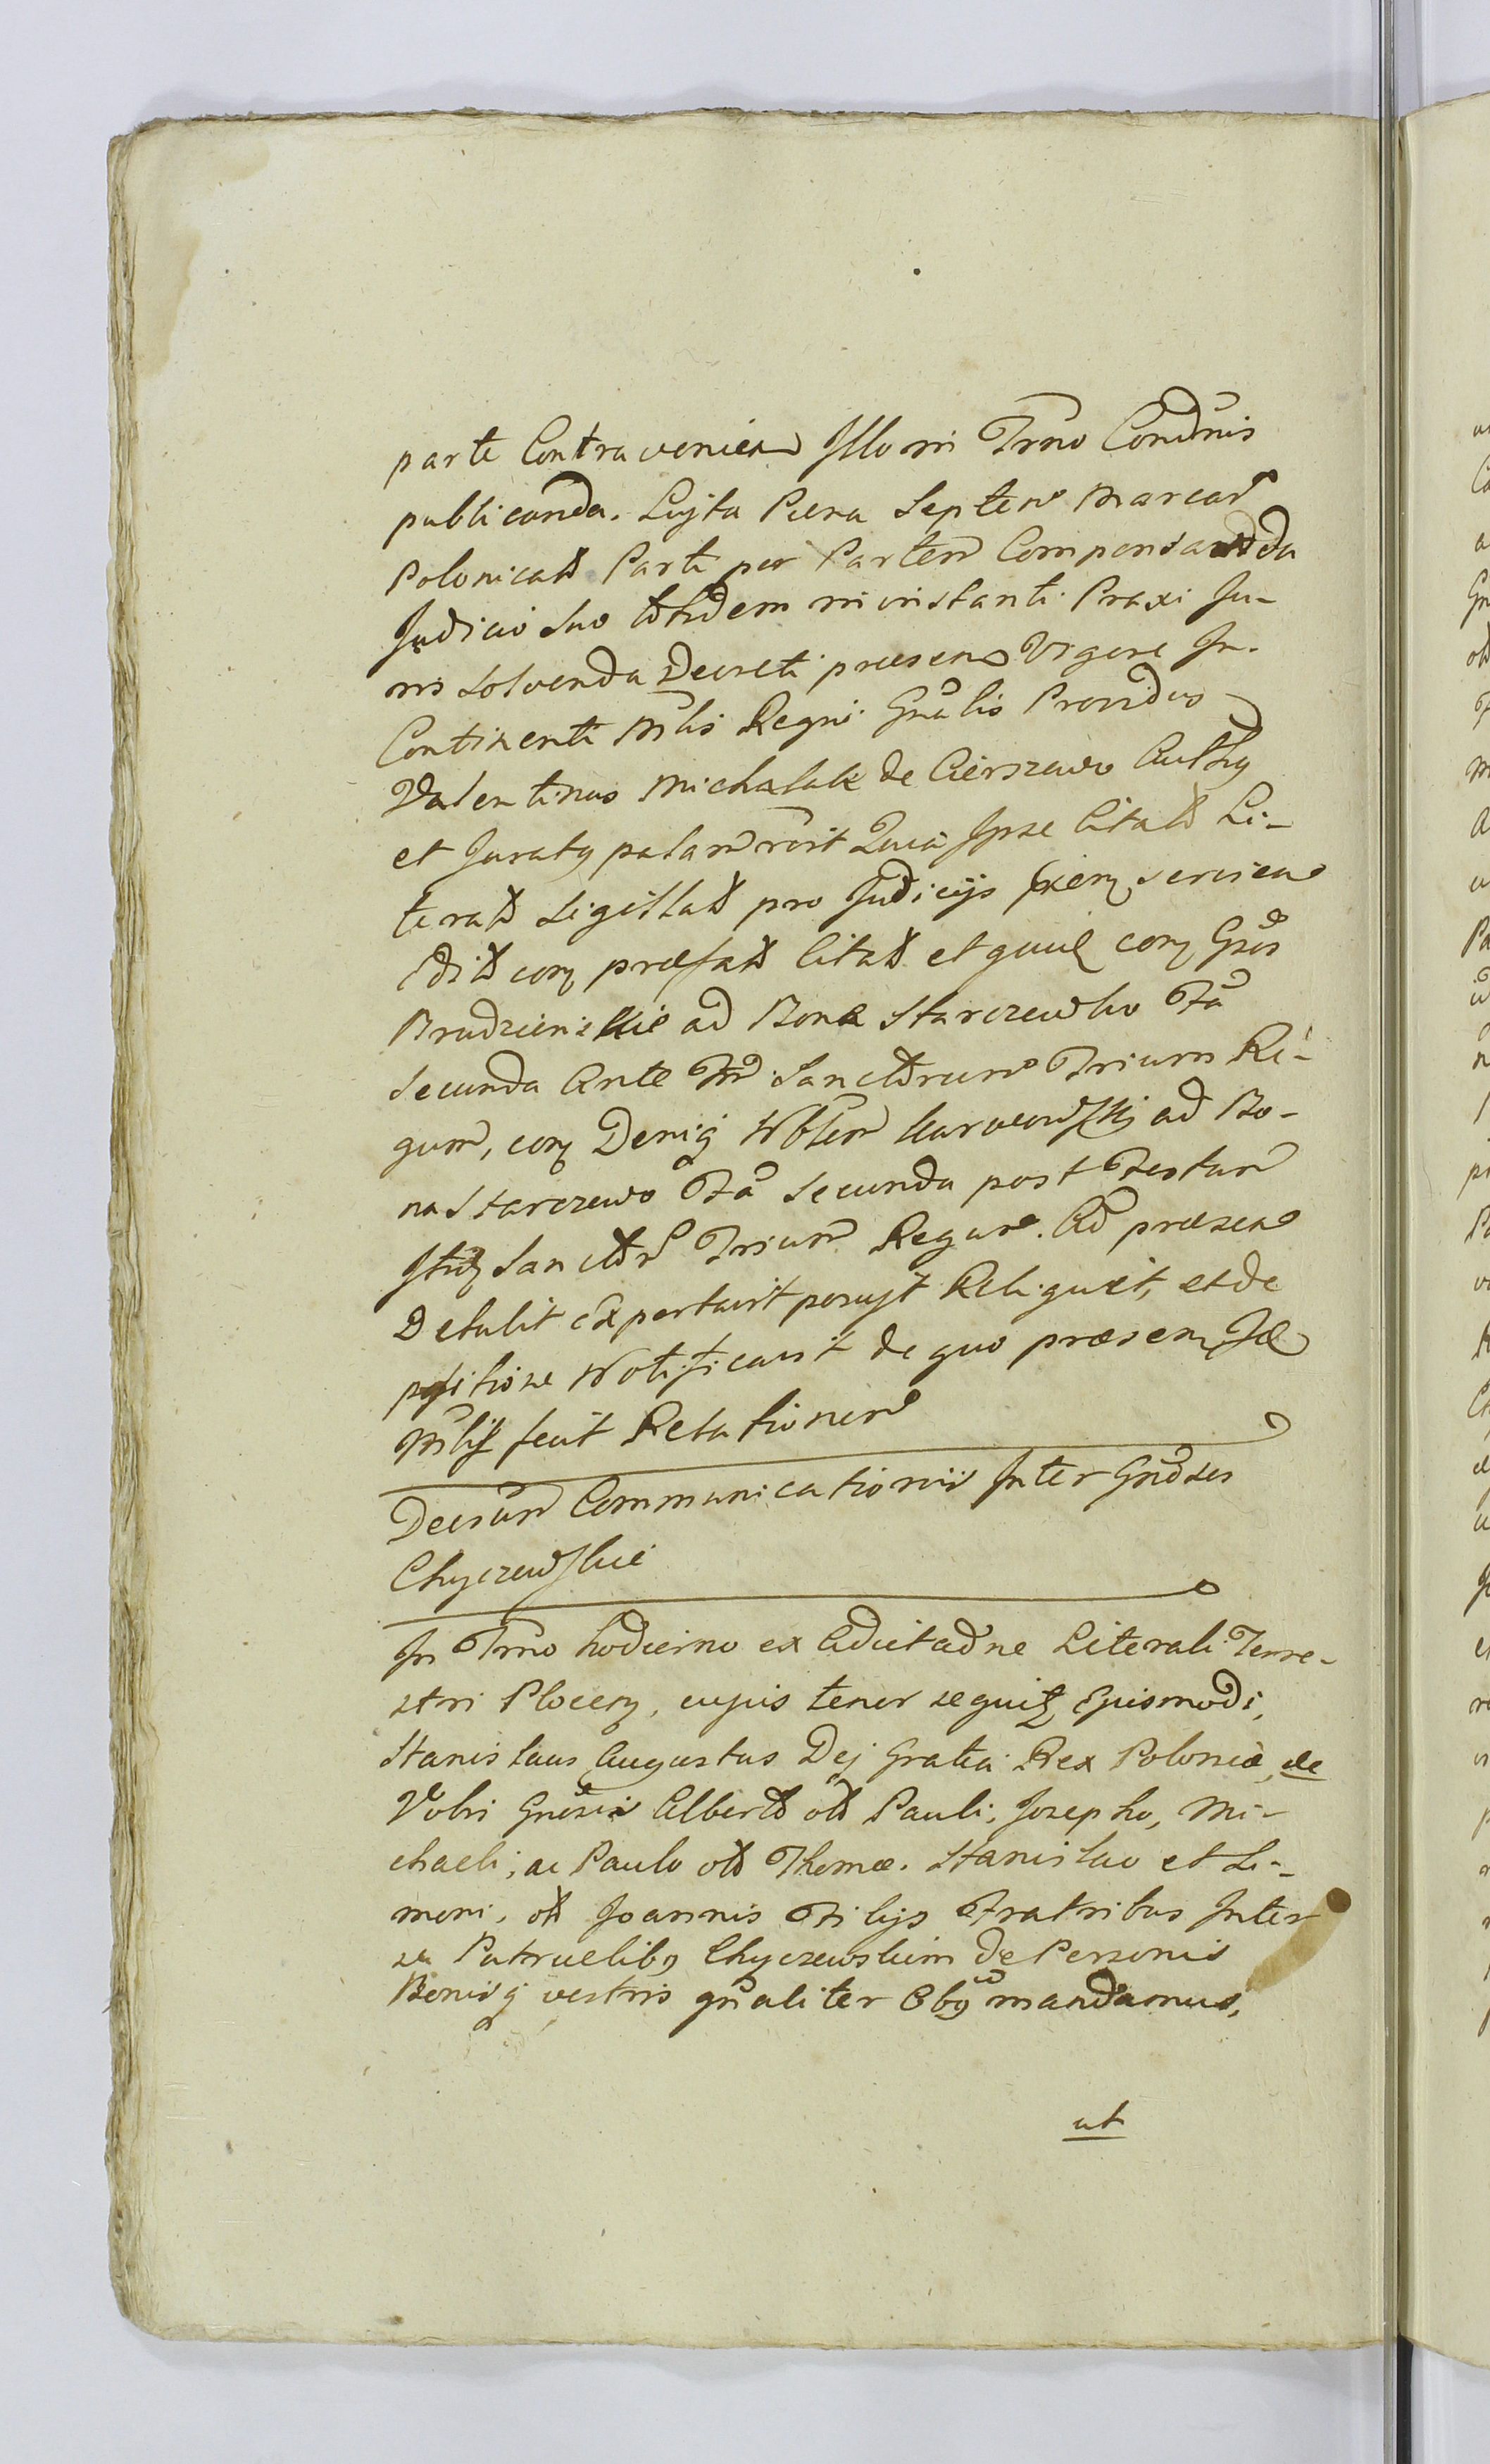 parte Contravenien Illo in Trno Condnis
publicanda. Lujta Pœna Septem Marcar
Polonicať Parti per Partem Compensanda
Judicio suo totidem in instanti Praxi Ju-
ris solvenda Decreti præsen Vigore In-
Continenti Mlis Regni Gnalis Providus
Valentinus Michalak de Cierszewo Auth9
et Jurat9 palam rcit Quia Ipse Citat Li-
terat Sigillat pro Judicijs servien
Edit præfat Citat et Gsos
Brudzinskie ad Bona Starczewko Fa
Secunda Ante Fm Sanctorum Trium Re-
gum, Deniq Nblem Karwowskj ad Bo-
na Starczewo Fa Secunda post Festum
Itid Sanctor Trium Regum. Ad præsen
Detulit exportavit posujt Reliquit, et de
positione Notificavit de quo præsen
Mlis fecit Relationem
Decsum Communicationis Inter Gnosos
Chyczewskie
In Trno hodierno ex Adcitaõne Literali Terre-
stri Plocen, cujus tenor sequit Ejusmodi,
Stanislaus Augustus Dej Gratia Rex Poloniæ, de
Vobis Gnosis Albert olt Pauli, Josepho, Mi-
chaeli, ac Paulo olt Thomæ. Stanislao et Si-
moni, olt Joannis Filijs Fratribus Inter
se Patruelib9 Chyczewskim de Personis
Bonisq vestris gnaliter Obg mandamus,
ut